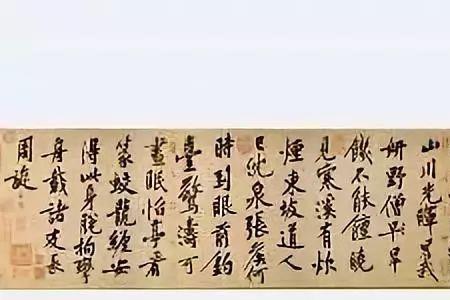 山川光暉為我
妍野僧早
饑不能饘曉
見寒溪有炊
煙東坡道人
已沈泉張侯何
時到眼前釣
臺驚濤可
晝眠怡亭看
篆蛟龍纏安
得此身脫拘攣
舟載諸友長
周旋